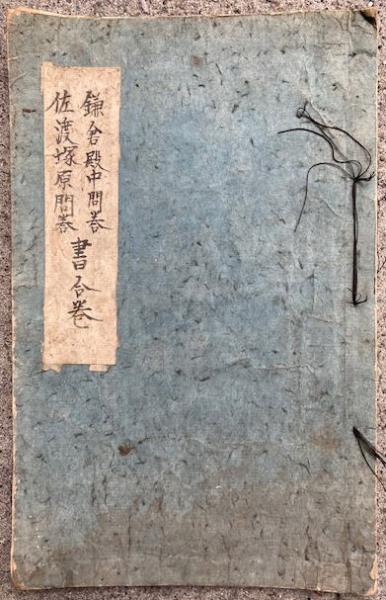 鎌倉殿中問荅
佐渡塚原問荅
書合巻